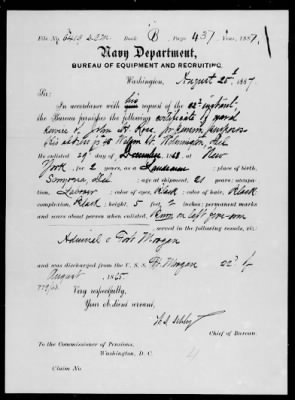 File No. Book Page 437 Year, 1887,
Navy Department,
BUREAU OF EQUIPMENT AND RECRUITING.
Washington, August 25th, 1887
Sir:
In accordance with his request of the 22d
the Bureau furnishes the following certificate of naval
service of John H. Rose, for pension purposes
His address is Wilmington, Del
He enlisted 29 day of December, 186 at New
York, for 2 years, as a Landsman; place of birth,
Del; age at enlistment, 21 years; occupation,
Laborer; color of eyes, Black; color of hair, Black
complexion, Black; height, 5 feet inches; permanent marks
and scars about person when enlisted,
served in the following vessels, viz:
Admiral & Fort Morgan
and was discharged from the U. S. S. Ft. Morgan 22d of
August, 1865.
Very respectfully,
Your obedient servant,
Chief of Bureau.
To the Commissioner of Pensions,
Washington, D. C.
Claim No.